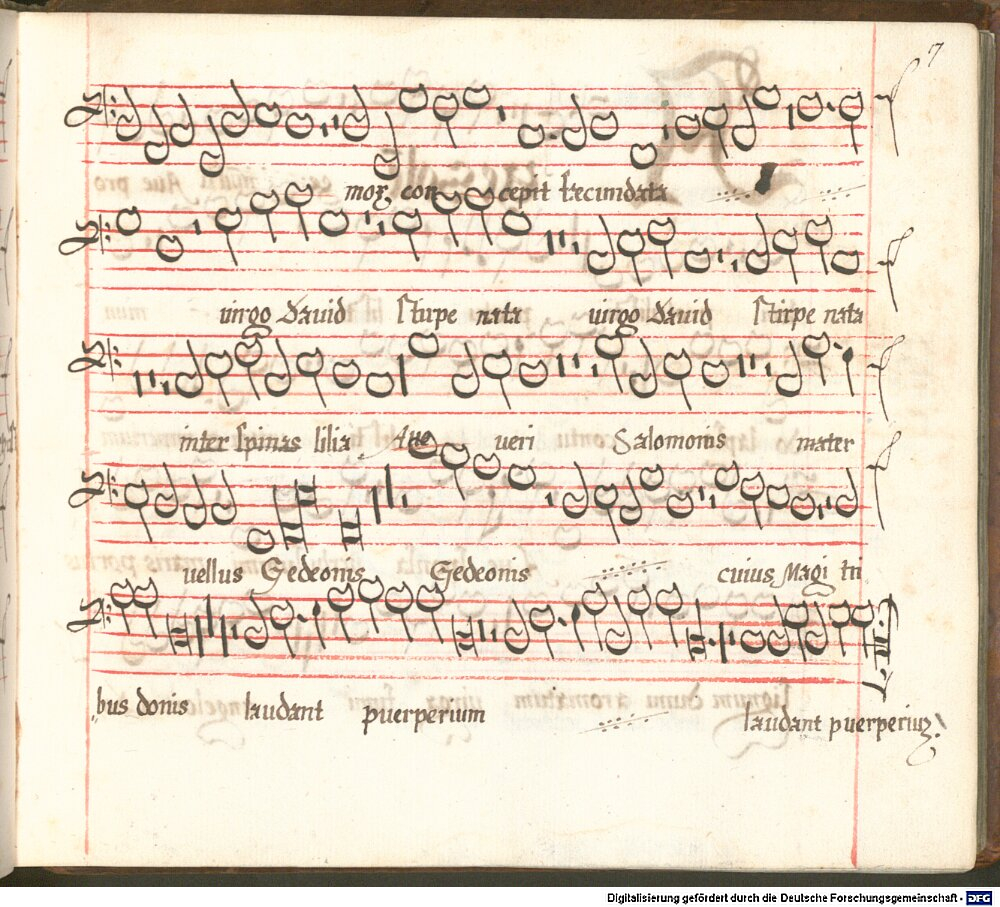 7
mox, con cepit fecundata
virgo David stirpe nata virgo David stirpe nata
inter spinas lilia Aue ueri Salomonis mater
uellus Gedeonis Gedeonis cuius Magi tri
bus donis laudant puerperium laudant puerperiuz
Digitalisierung gefördert durch die Deutsche Forschungsgemeinschaft - DFG